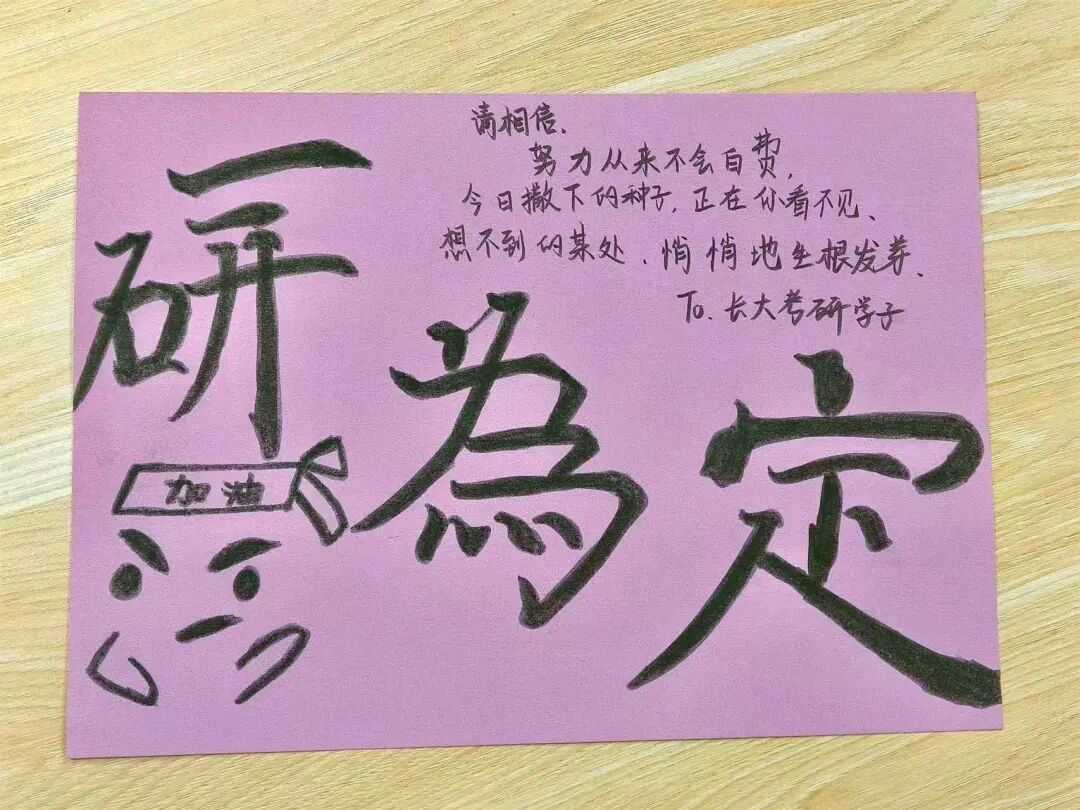 请相信、
努力从来不会白费,
今日撒下的种子,正在你看不见、
想不到的某处、悄悄地生根发芽、
To. 长大考研学子
一研為定
加油